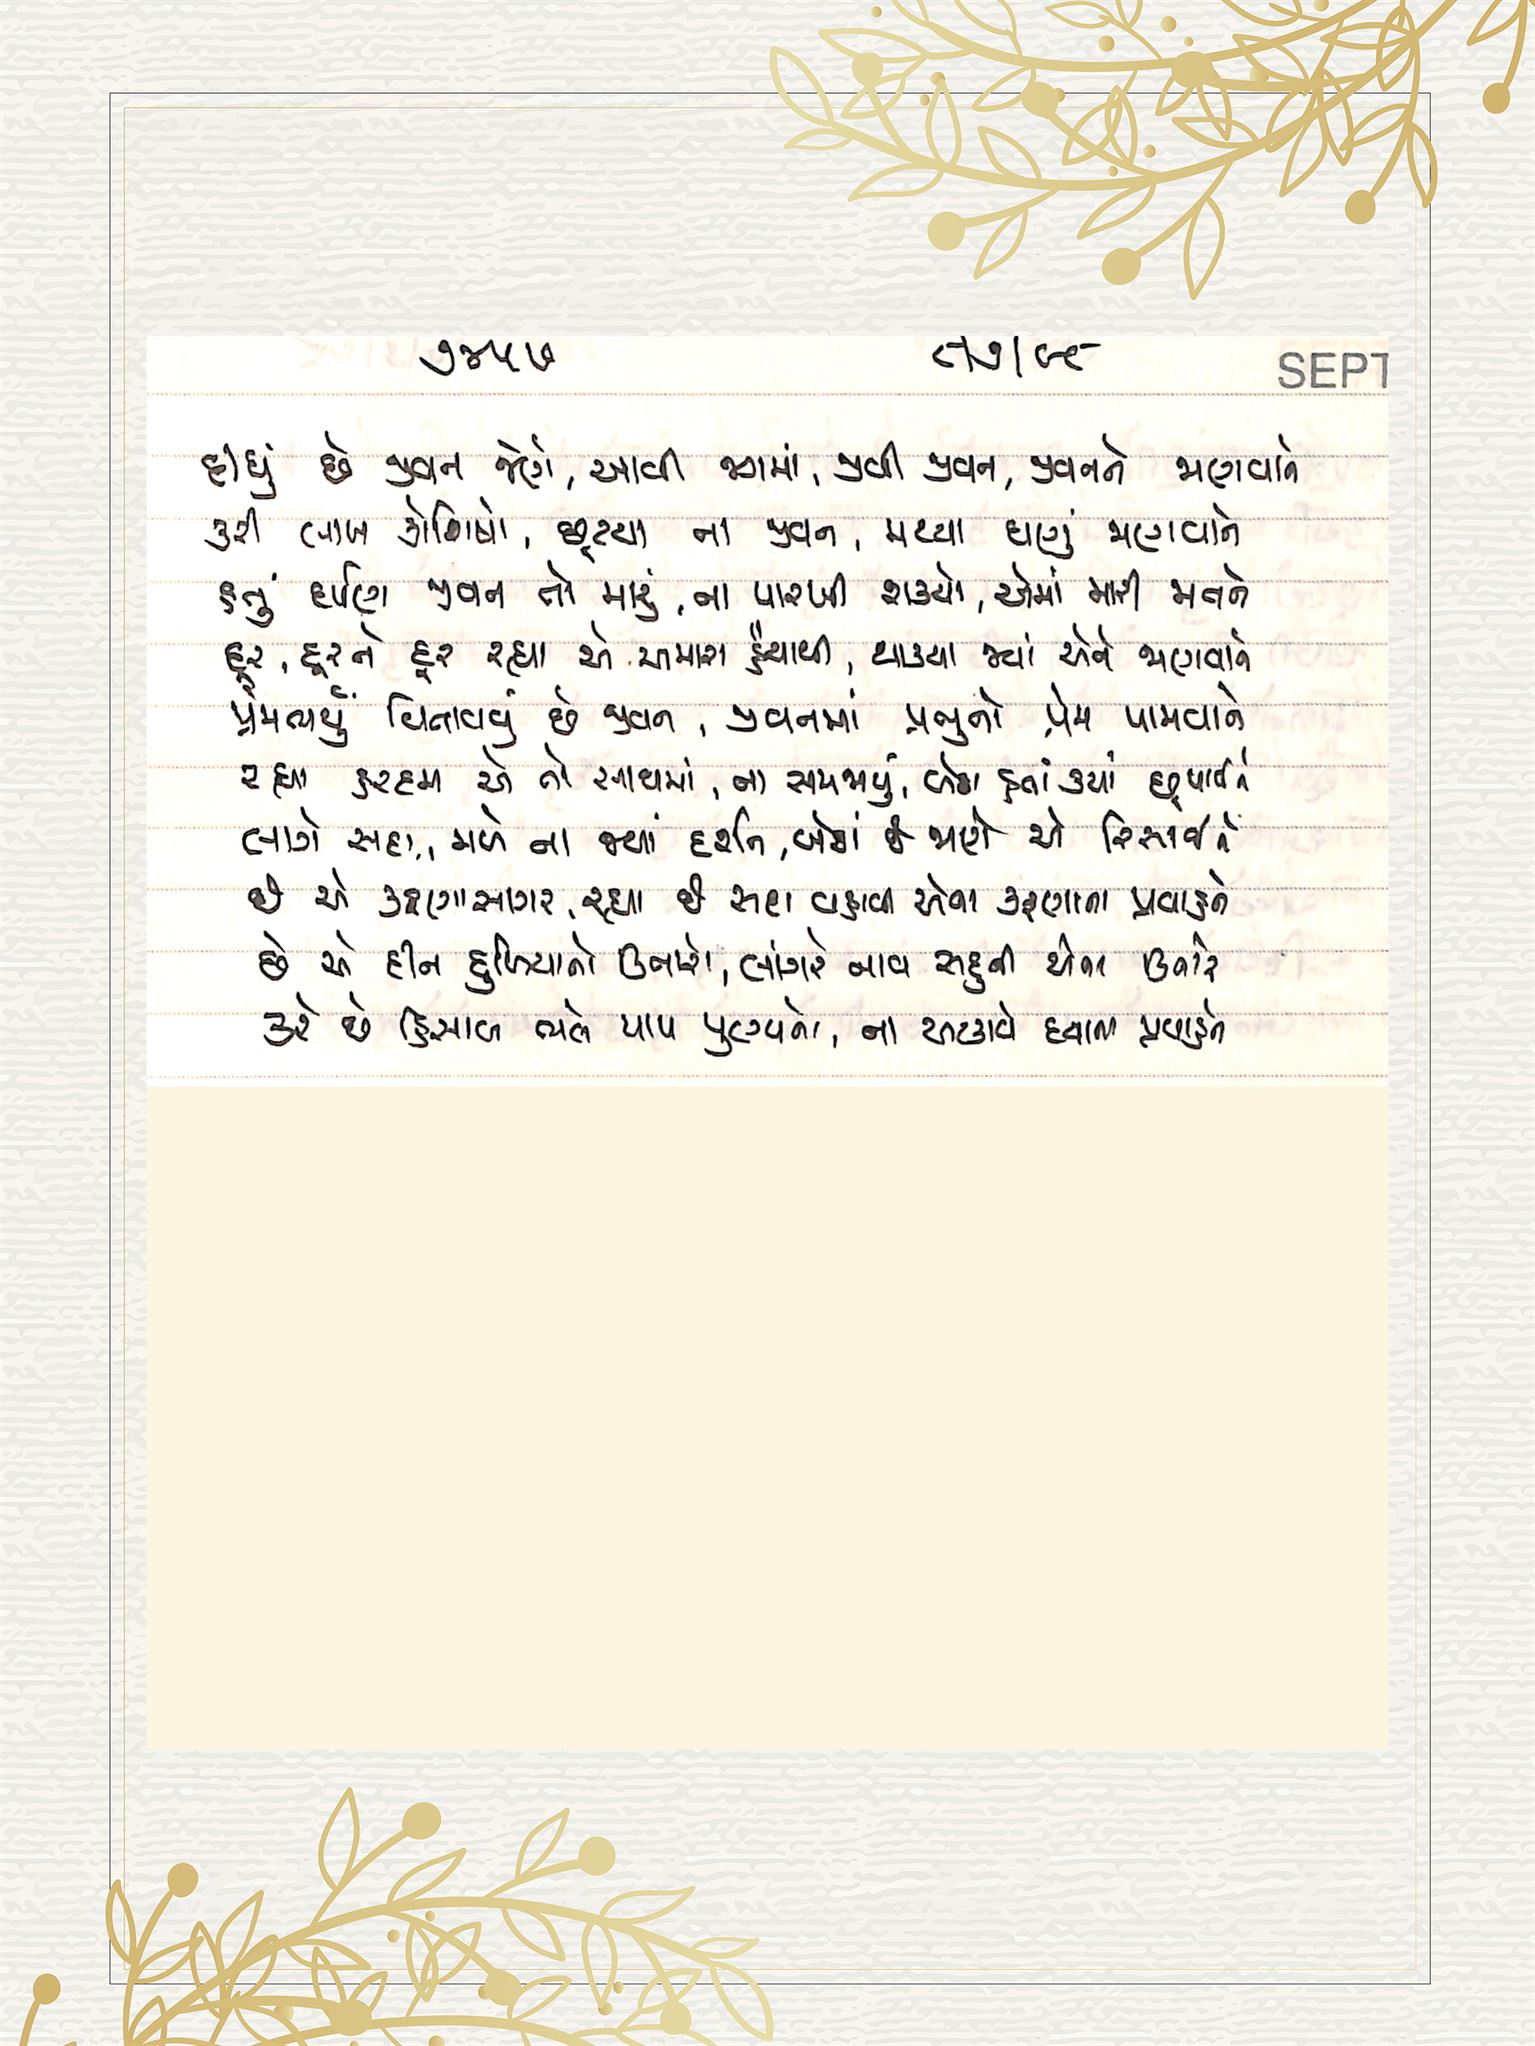 ૭૪૫૭ ૮/૭/૯૮ SEPT
દીધું છે જીવન જેણે, આવી જગમાં, જીવી જીવન, જીવનને જાણવાને
કરી લાખ કોશિષો, છૂટયા ના જીવન, મથ્યા ઘણું જાણવાને
હતું દર્પણ જીવન તો મારું, ના પારખી શક્યો, એમાં મારી મનને
દૂર, દૂરને દૂર રહ્યા એ અમારા હૈયાથી, થાક્યા જ્યાં એને જાણવાને
પ્રેમભર્યું વિતાવવું છે જીવન, જીવનમાં પ્રભુનો પ્રેમ પામવાને
રહ્યા હરદમ એ તો સાથમાં, ના સમજાયું, બેઠા હતાં ક્યાં છૂપાઈને
લાગે સદા, મળે ના જ્યાં દર્શન, બેઠાં છે જાણે એ રિસાઈને
છે એ કરુણાસાગર, રહ્યા છે સદા વહાવી એના કરૂણાના પ્રવાહને
છે એ દીન દુઃખિયાનો ઉતારો, લાંગરે નાવ સહુની એના ઉતારે
કરે છે હિસાબ ભલે પાપ પુણ્યનો, ના અટકાવે દયાના પ્રવાહને